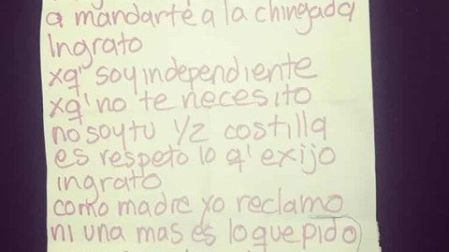 a mandarte a la chingada
Ingrato
xq' soy independiente
xq' no te necesito
no soy tu 1/2 costilla
es respeto lo q' exijo
ingrato
como madre yo reclamo
ni una mas es lo que pido